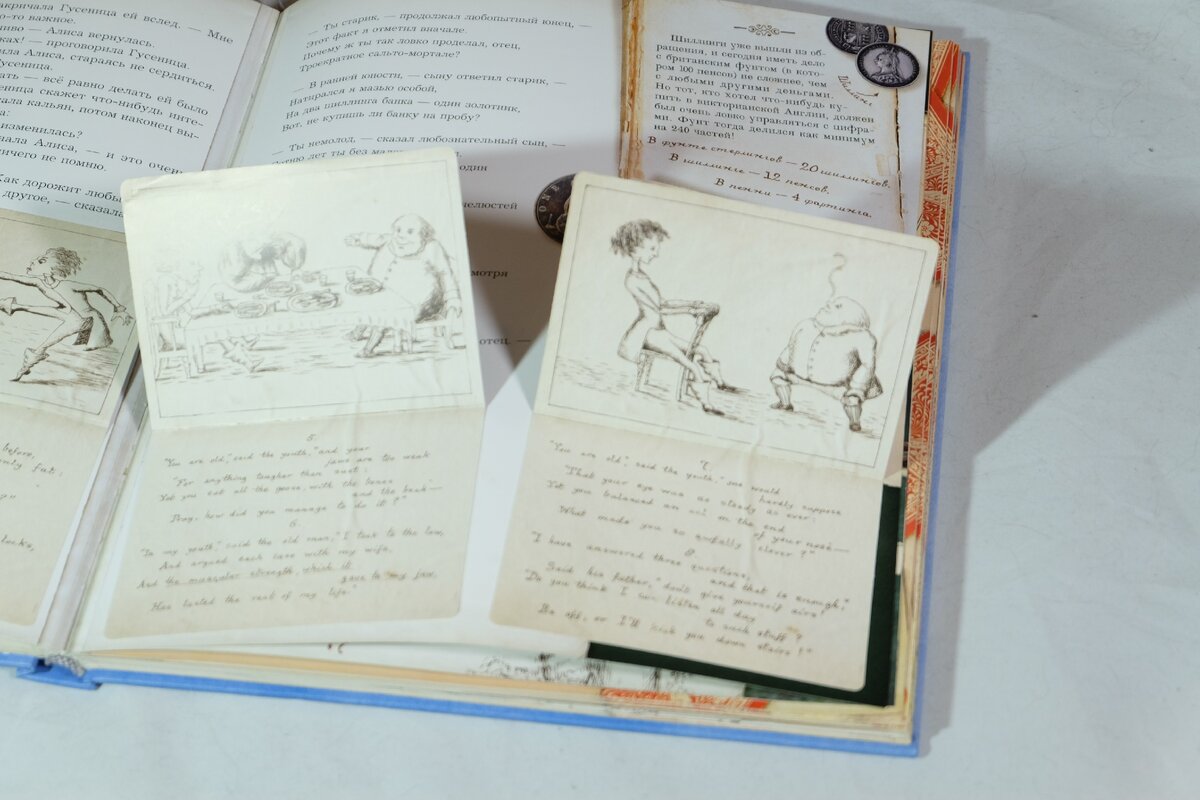 акричала Гусеница ей вслед. — Мне
о-то важное.
иво — Алиса вернулась.
ках! — проговорила Гусеница.
ила Алиса, стараясь не сердиться.
усеница.
ать — всё равно делать ей было
еница скажет что-нибудь инте-
ала кальян, потом наконец вы-
а:
изменилась?
чала Алиса, — и это очень
ичего не помню.
Как дорожит любы
другое, — сказала
— Ты старик, — продолжал любопытный юнец, —
Этот факт я отметил вначале.
Почему ж ты так ловко проделал, отец,
Троекратное сальто-мортале?
— В ранней юности, — сыну ответил старик, —
Натирался я мазью особой,
На два шиллинга банка — один золотник,
Вот, не купишь ли банку на пробу?
— Ты немолод, — сказал любознательный сын, —
Сотню лет ты без
один
челюстей
мотря
отец. —
Шиллинги уже вышли из об-
ращения, и сегодня иметь дело
с британским фунтом (в кото-
ром 100 пенсов) не сложнее, чем
с любыми другими деньгами.
Но тот, кто хотел что-нибудь ку-
пить в викторианской Англии, должен
был очень ловко управляться с цифра-
ми. Фунт тогда делился как минимум
на 240 частей!
Шиллинг
В фунте стерлингов — 20 шиллингов.
В шиллинге — 12 пенсов.
В пенни — 4 фартинга.
before,
only fat:
?"
locks,
5.
"You are old," said the youth, "and your
jaws are too weak
For anything tougher than suet:
Yet you eat all the goose, with the bones
and the beak —
Pray, how did you manage to do it?"
6.
"In my youth," said the old man, "I took to the law,
And argued each case with my wife,
And the muscular strength, which it
gave to my jaw,
Has lasted the rest of my life."
7.
"You are old," said the youth, "one would
hardly suppose
That your eye was as steady as ever:
Yet you balanced an eel on the end
of your nose —
What made you so awfully clever?"
8.
"I have answered three questions,
and that is enough,"
Said his father, "don't give yourself airs!
Do you think I can listen all day
to such stuff?
Be off, or I'll kick you down stairs!"